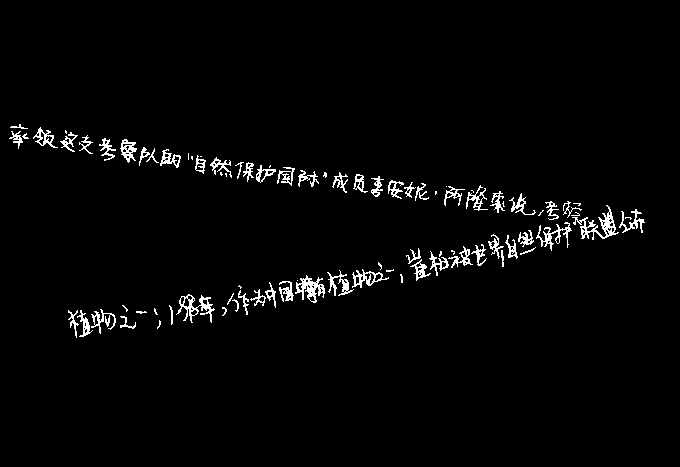 率领这支考察队的“自然保护国际”成员李安妮·阿隆索说,考察
植物之一;1998年,作为中国特有植物之一,崖柏被世界自然保护联盟公布